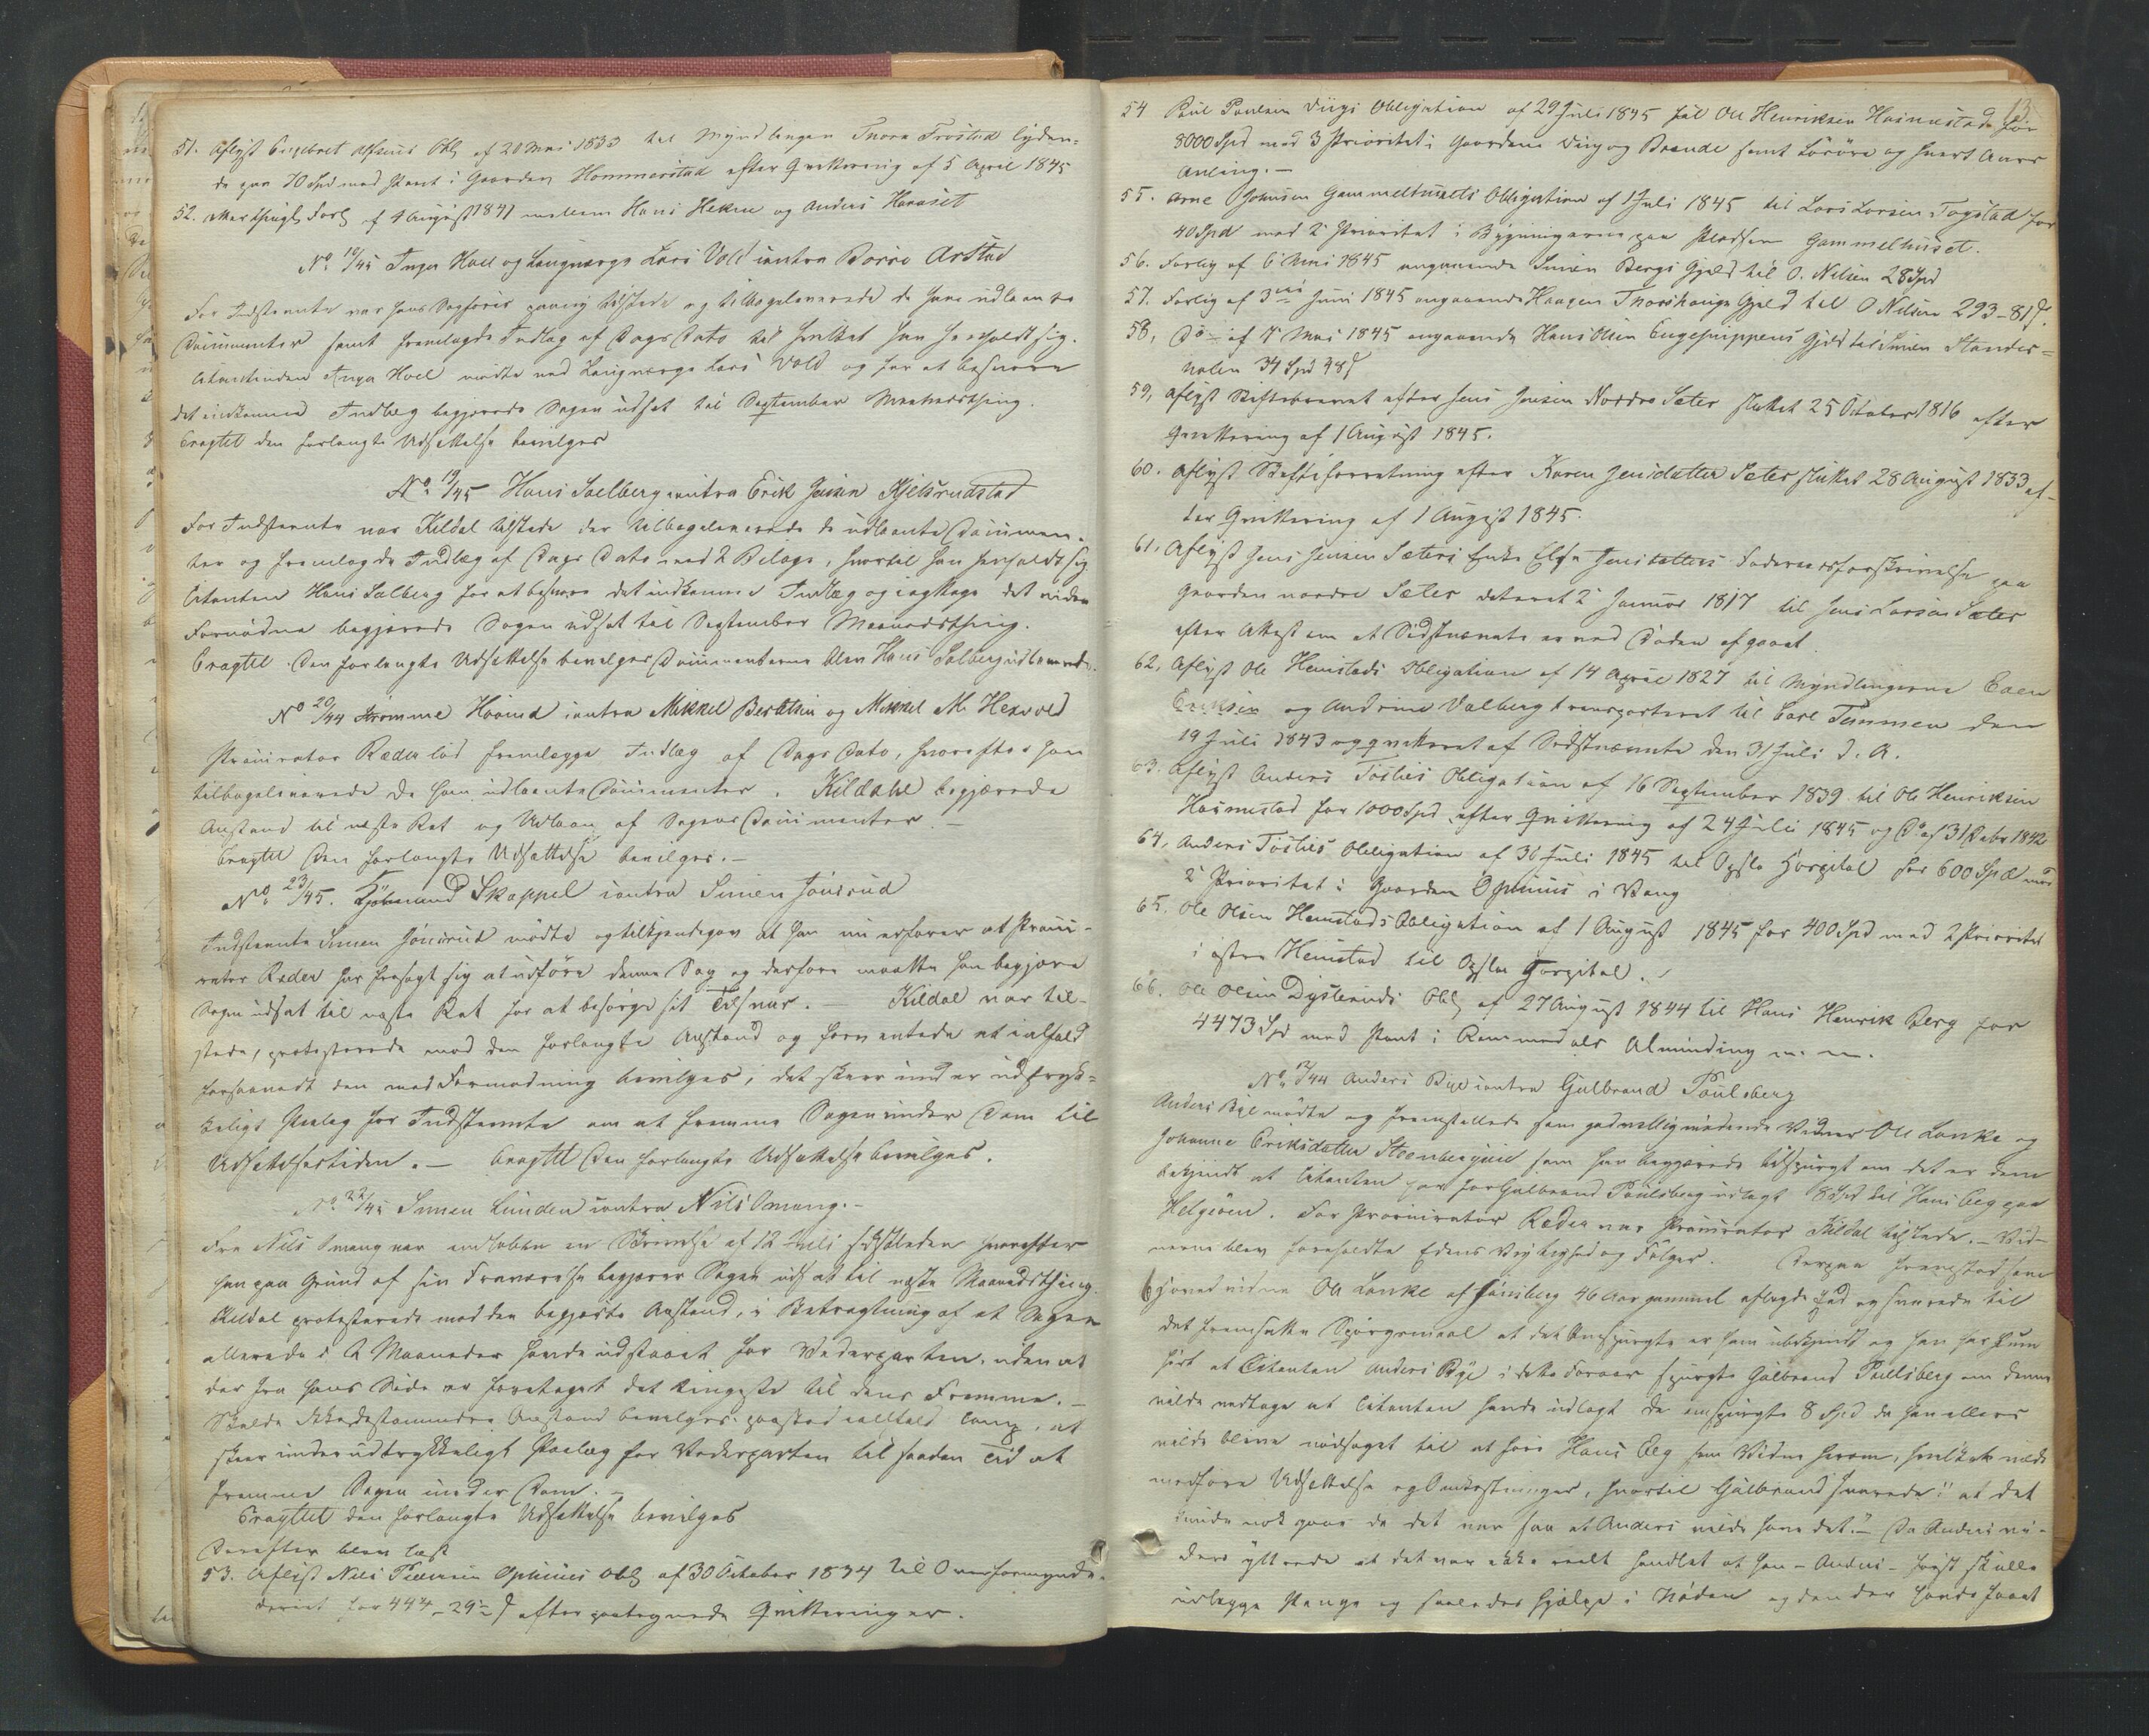 51. Aflyst Engebret Obl af 20 Mai 1833 til Myndlingen Thora Frostad lyden-
de paa 70 Spd med Pant i Gaarden Hommerstad efter Qvittering af 5 April 1845
52. Forlig af 4 August 1841 mellem Hans Hekne og Anders Haraset
No 18/45 Inger Hoel og Laugværge Lars Vold contra Borre Arstad
For Indstevnte var hans Sagfører tilstede og tilbageleverede de ham udlaante
Documenter samt fremlagde Indlæg af Dags Dato til hvilket han henholdt sig.
Citantinden Inger Hoel mødte med Laugværge Lars Vold og for at besvare
det indkomne Indlæg begjærede Sagen udsat til September Maanedsthing.
Eragtet den forlangte Udsættelse bevilges
No 19/45 Hans Solberg contra Erik Jensen Kjelsrudstad
For Indstevnte var Kildal tilstede der tilbageleverede de udlaante Documen-
ter og fremlagde Indlæg af Dags Dato med 2 Bilage, hvortil han henholdt sig
Citanten Hans Solberg for at besvare det indkomne Indlæg og iagttage det videre
Fornødne begjærede Sagen udsat til September Maanedsthing.
Eragtet Den forlangte Udsættelse bevilges Documenterne blev Hans Solberg udleverede.
No 20/44 Hoerud contra Mikkel Bertelsen og Mikkel M. Hexvold
Procurator Ræder lod fremlægge Indlæg af Dags Dato, hvorefter han
tilbageleverede de ham udlaante Documenter. Kildahl begjærede
Anstand til næste Ret og Udlaan af Sagens Documenter
Eragtet Den forlangte Udsættelse bevilges.-
No 23/45. Skappel contra Simen Jønsrud
Indstevnte Simen Jønsrud mødte og tilkjendegav at han nu erfarer at Procu-
rator Ræder har frasagt sig at udføre denne Sag og derfore maatte han begjære
Sagen udsat til næste Ret for at besørge sit Tilsvar. - Kildal var til-
stede, protesterede mod den forlangte Anstand og formentede at ialfald
forsaavidt den mod Formodning bevilges, det skeer under udtryk-
keligt Paalæg for Indstevnte om at fremme Sagen under Dom til
Udsættelsestiden. - Eragtet Den forlangte Udsættelse bevilges.
No 22/45 Simen Lunden contra Nils Omang.-
Fra Nils Omang var indløben en Skrivelse af 12 Juli sidstleden hvorefter
han paa Grund af sin Fraværelse begjærer Sagen udsat til næste Maanedsthing.
Kildal protesterede mod den begjærte Anstand, i Betragtning af at Sagen
allerede i 2 Maaneder havde udstaaet for Vederparten, uden at
der fra hans Side er foretaget det ringeste til dens Fremme.-
Skulde Anstand bevilges paastod ialfald Comp. at
skeer under udtrykkeligt Paalæg for Vederparten til saadan Tid at
fremme Sagen under Dom.-
Eragtet den forlangte Udsættelse bevilges
Derefter blev læst
53. Aflyst Nils Pedersen Ophuus Obl af 30 October 1834 til Overformynde-
deriet for 444 - 29 efter paategnede Qvitteringer.
13
54 Poul Poulsen Viigs Obligation af 29 Juli 1845 til Ole Henriksen Hasnestad for
8000 Spd med 3 Prioritet i Gaardene Viig og Brende samt Løsøre og
Avling.-
55. Arne Johnsen Gammelhusets Obligation af 1 Juli 1845 til Lars Larsen Togstad for
40 Spd med 2 Prioritet i Bygningerne paa Pladsen Gammelhuset.
56. Forlig af 6 Mai 1845 angaaende Simen Bergs Gjæld til O. Nilsen 28 Spd
57. Forlig af 3die Juni 1845 angaaende Haagen Thorshaugs Gjæld til O Nilsen 293 - 81 ß.
58, Do af 7 Mai 1845 angaaende Hans Olsen Gjæld til Simen Stander-
holen 34 Spd 48 ß
59, Aflyst Skiftebrevet efter Jens Jensen Nordre Sæter sluttet 25 October 1816 efter
Qvittering af 1 August 1845.
60. Aflyst Skifteforretning efter Karen Jensdatter Sæter sluttet 28 August 1833 ef-
ter Qvittering af 1 August 1845
61, Aflyst Jens Jensen Sæters Enke Else Jensdatters Føderaadsforskrivelse paa
Gaarden nordre Sæter dateret 2 Januar 1817 til Jens Larsen Sæter
efter Attest om at Sidstnævnte er ved Døden afgaaet
62, Aflyst Ole Hemstads Obligation af 14 April 1827 til Myndlingerne
Eriksen og Andrine Valberg transporteret til Carl Temmen den
19 Juli 1843 og qvitteret af Sidstnævnte den 31 Juli d. A.
63. Aflyst Anders Tøsties Obligation af 16 September 1839 til Ole Henriksen
Hasnestad for 1000 Spd, efter Qvittering af 24 Juli 1845 og Do af 31 Debr 1842
64, Anders Tøsties Obligation af 30 Juli 1845 til Opslo Hospital for 600 Spd mod
2 Prioritet i Gaarden Ophuus i Vang
65. Ole Olsen Hemstads Obligation af 1 August 1845 for 400 Spd med 2 Prioritet
i østre Hemstad til Opslo Hospital.
66. Ole Olsen Dysterud Obl af 27 August 1844 til Hans Henrik Berg for
4473 Spd med Pant i Rommedals Alminding m. m.
No 12/44 Anders Bye contra Gulbrand Poulsberg
Anders Bye mødte og fremstillede som godvillig mødende Vidner Ole Lanke og
Johanne Eriksdatter som han begjærede tilspurgt om det er dem
bekjendt at Citanten har for Gulbrand Poulsberg udlagt 8 Spd til Hans Eeg paa
Helgeøen. For Procurator Ræder var Procurator Kildal tilstede.- Vid-
nerne blev foreholdte Edens Vigtighed og Følger. Derpaa fremstod som
6 Hovedvidne Ole Lanke af 46 Aar gammel aflagde Eed og svarede til
det fremsatte Spørgsmaal at det Omspurgte er ham ubekjendt og han har kun
hørt at Citanten Anders Bye i dette Foraar spurgte Gulbrand Poulsberg om denne
vilde vedtage at Citanten havde udlagt de omspurgte 8 Spd da han ellers
vilde blive nødsaget til at føre Hans Eeg som Vidne herom, hvilket vilde
medføre Udsættelse og Omkostninger, hvortil Gulbrand svarede: "at det
kunde nok gaae da det var saa at Anders vilde have det." Da Anders vi-
dere yttrede at det var ikke reelt handlet at han - Anders - først skulle
udlægge Penge og saaledes hjælpe i Nøden og den der havde faaet